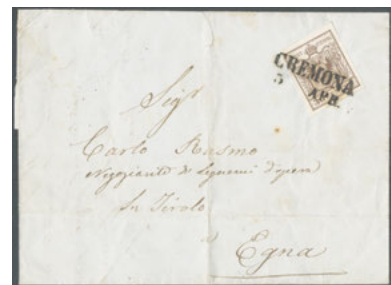 CREMONA
5 APR.
Sigr
Carlo Rasmo
Negoziante di Legnami d'opera
In Tirolo
Egna